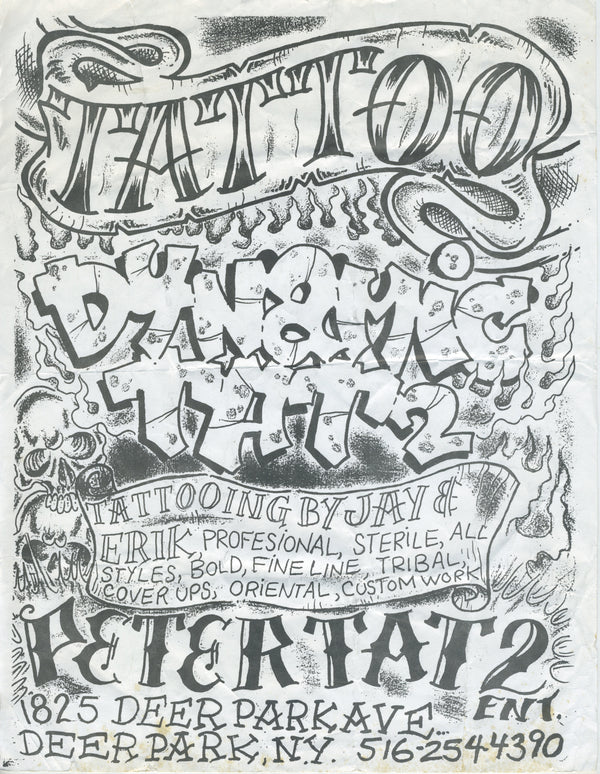 TATTOO
DYNAMIC
TAT2
TATTOOING BY JAY &
ERIK, PROFESIONAL, STERILE, ALL
STYLES, BOLD, FINE LINE, TRIBAL,
COVER UPS, ORIENTAL, CUSTOM WORK
PETER TAT2
ENT.
1825 DEER PARK AVE...
DEER PARK, N.Y. 516-254-4390